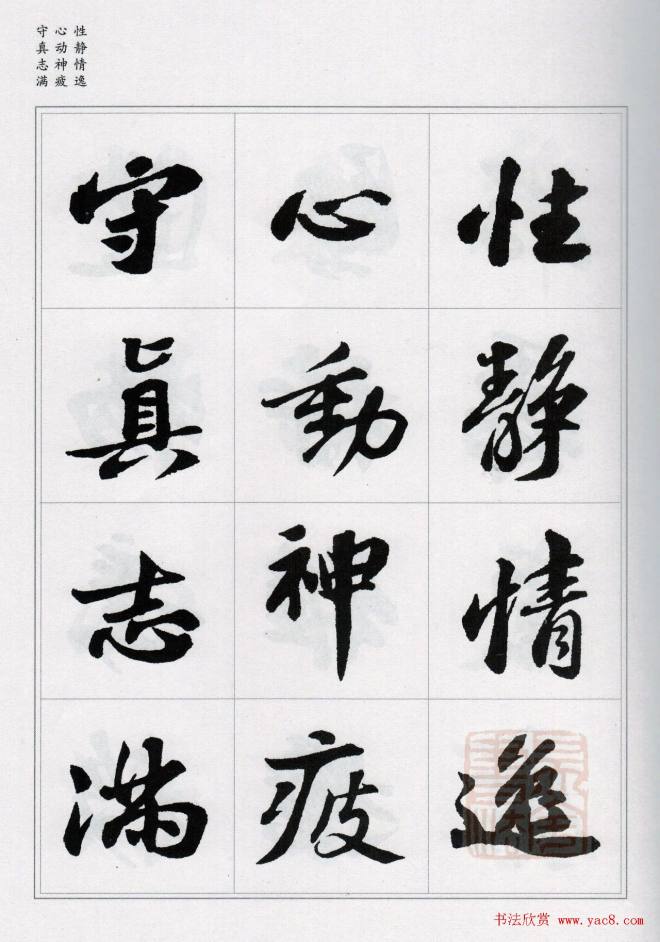 性静情逸
心动神疲
守真志满
性靜情逸
心動神疲
守真志滿
书法欣赏 www.yac8.com